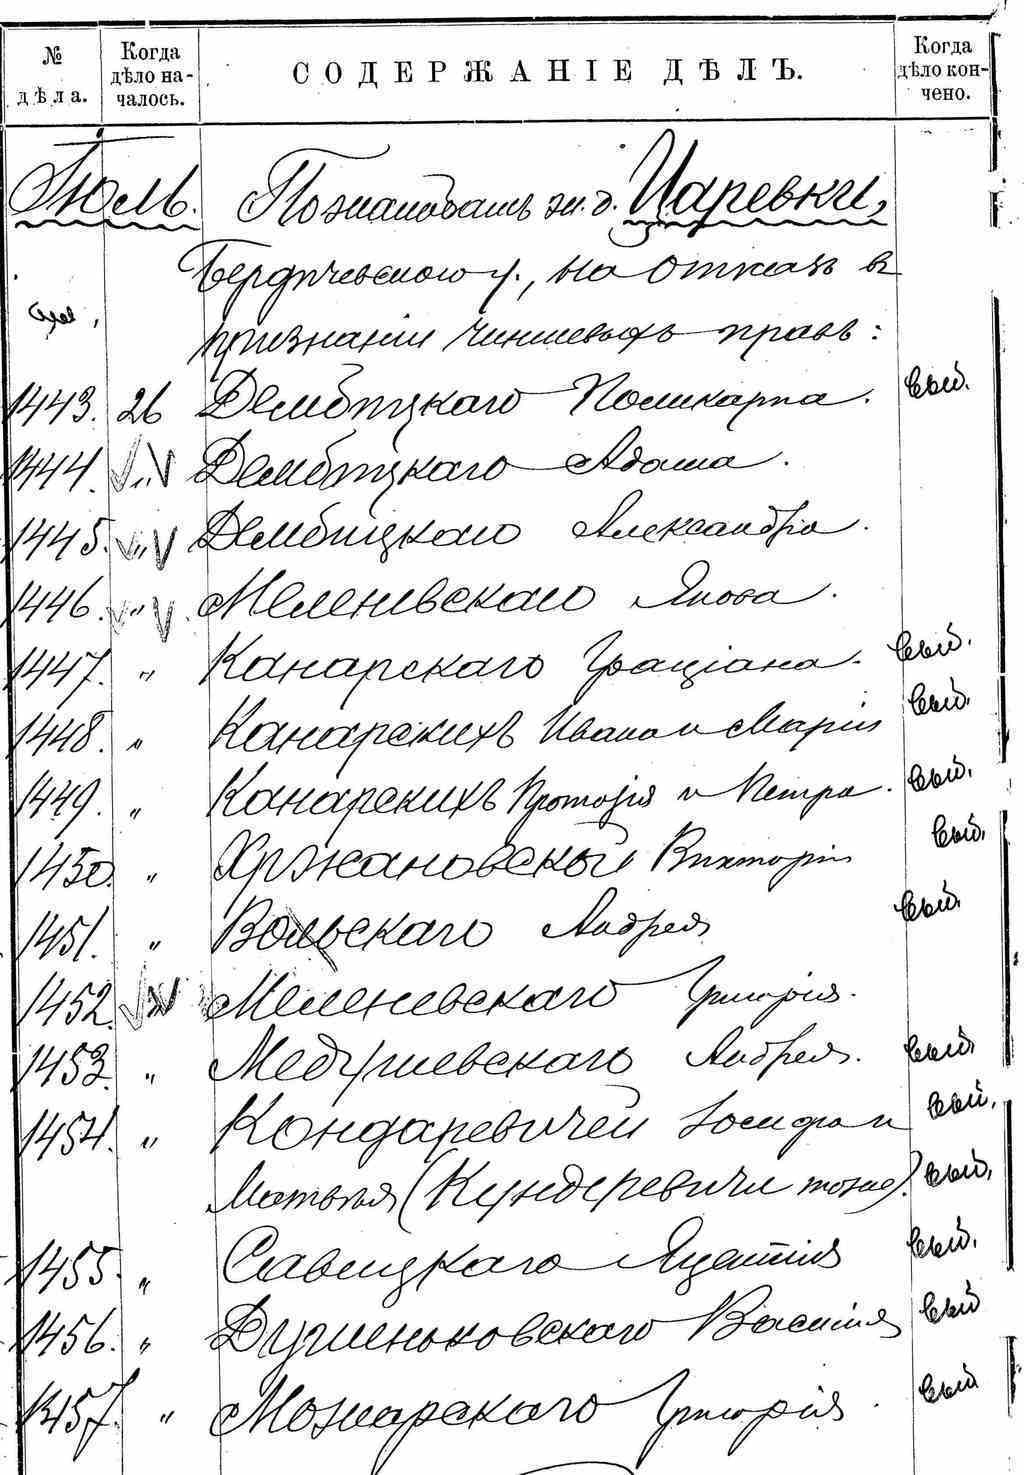 № дѣла.
Когда дѣло на-
чалось.
СОДЕРЖАНІЕ ДѢЛЪ.
Когда дѣло кон-
чено.
Іюль. По жалобамъ жи. д. Царевки,
Бердичевского у., на отказъ въ
признаніи чиншевыхъ правъ:
1443. 26 Дембицкаго Поликарпа. выб.
1444. „ Дембицкаго Адама.
1445. „ Дембицкаго Александра.
1446. „ Меленевскаго Якова.
1447. „ Канарскаго Граціана. выб.
1448. „ Канарскихъ Ивана и Маріи выб.
1449. „ Канарскихъ Протазія и Петра. выб.
1450. „ Хржановской Викторіи выб.
1451. „ Вольскаго Андрея выб.
1452. „ Меленевскаго Григорія.
1453. „ Медушевскаго Андрея. выб.
1454. „ Кондаревичей Іосифа и выб.
Матвѣя (Кундеревичи тоже). выб.
1455. „ Савицкаго Яцентія выб.
1456. „ Душеньковскаго Василія выб
1457. „ Можарскаго Григорія. выб